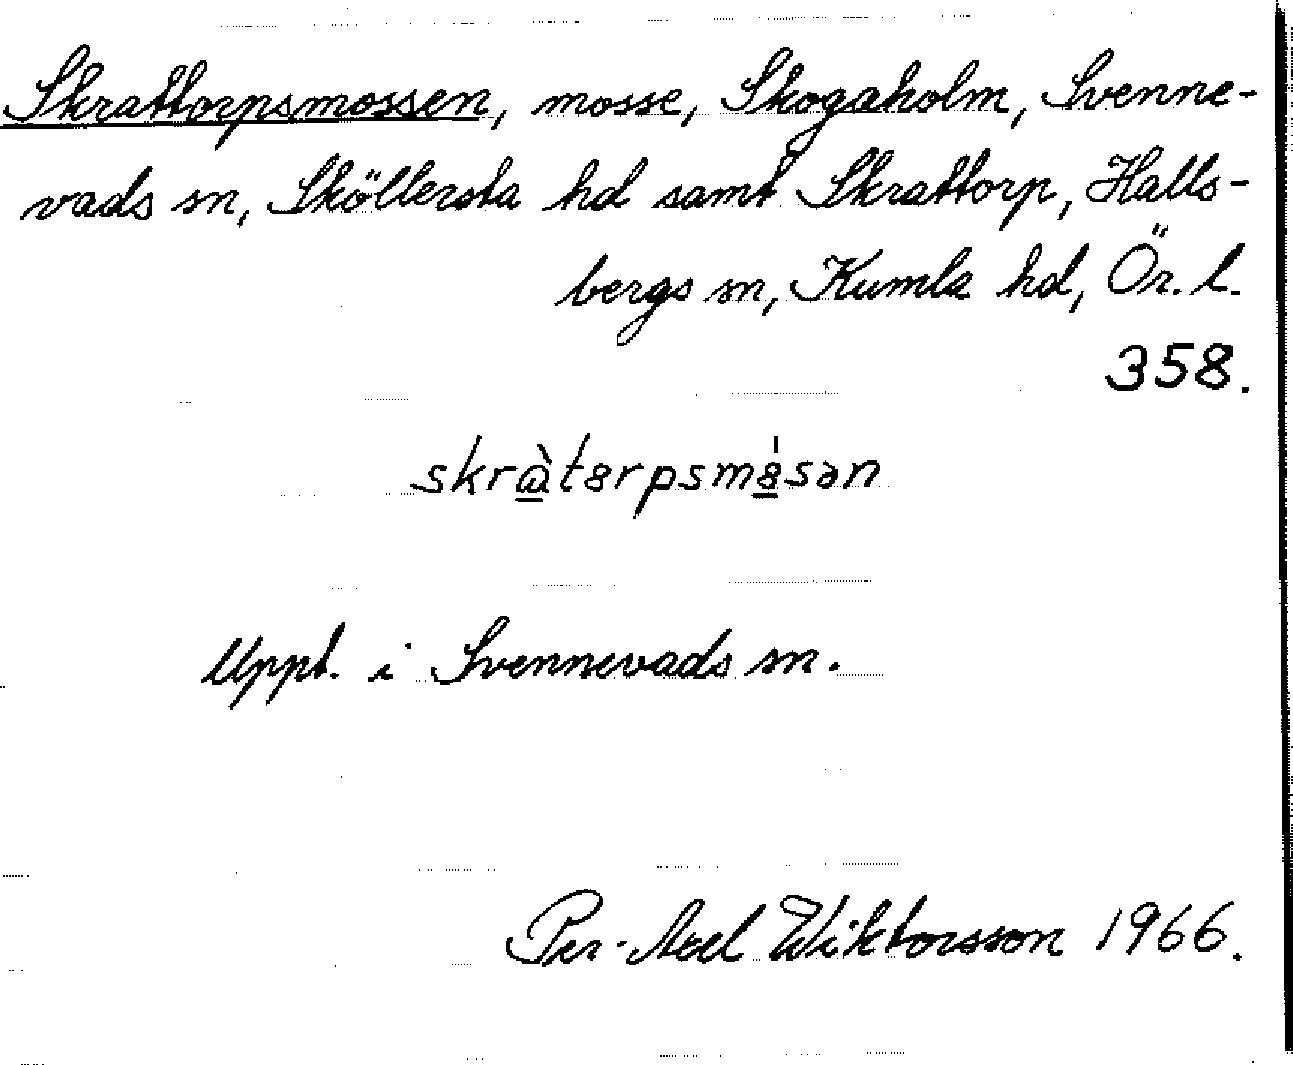 Skrattorpsmossen, mosse, Skogaholm, Svenne-
vads sn, Sköllersta hd samt Skrattorp, Halls-
bergs sn, Kumla hd, Ör. l.
358.
Uppt. i Svennevads sn.
Per-Axel Wiktorsson 1966.